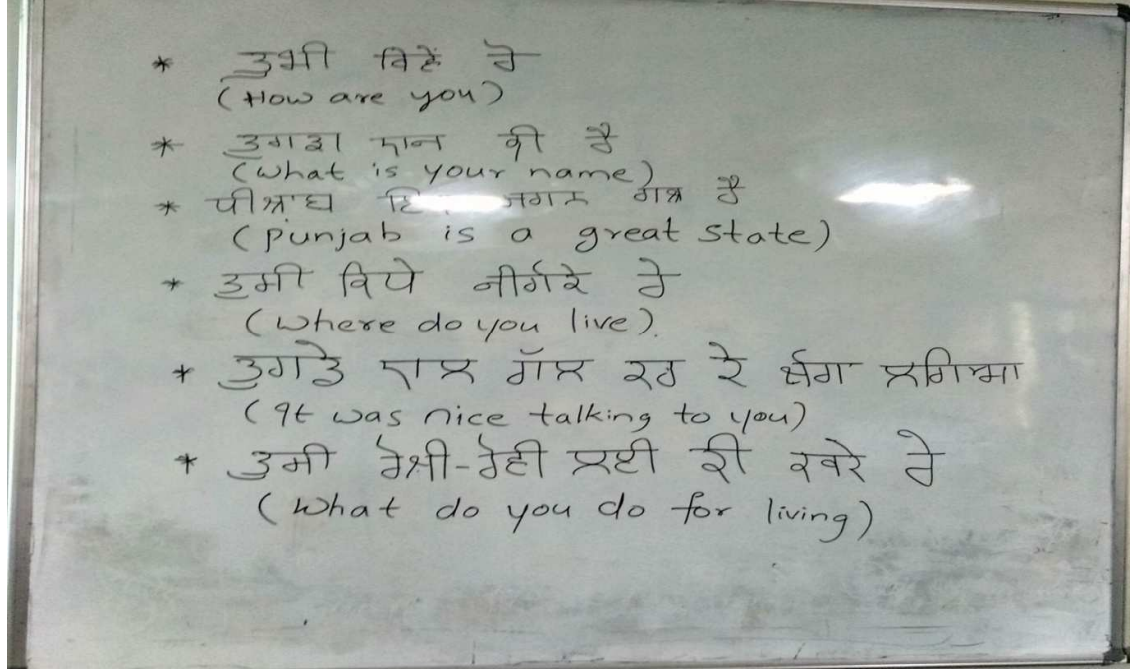 * ਤੁਸੀ ਕਿਵੇਂ ਹੋ
(How are you)
* ਤੁਹਾਡਾ ਨਾਮ ਕੀ ਹੈ
(what is your name)
* ਪੰਜਾਬ ਹੈ
(Punjab is a great state)
* ਤੁਸੀ ਕਿਥੇ ਰਹਿੰਦੇ ਹੋ
(where do you live).
* ਤੁਹਾਡੇ ਨਾਲ ਗੱਲ ਕਰ ਕੇ ਚੰਗਾ ਲਗਿਆ
(It was nice talking to you)
* ਤੁਸੀ ਰੋਜ਼ੀ-ਰੋਟੀ ਲਈ ਕੀ ਕਰਦੇ ਹੋ
(What do you do for living)